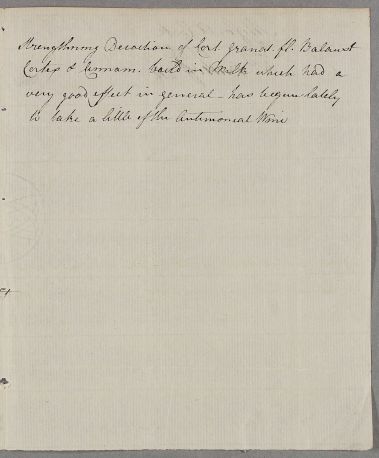 strengthning Decoction of Cort. granat. fl. Balaust
Cortex & Cinnam. boil'd in Milk which had a
very good effect in general - has begun lately
to take a little of the Antimonial Wine